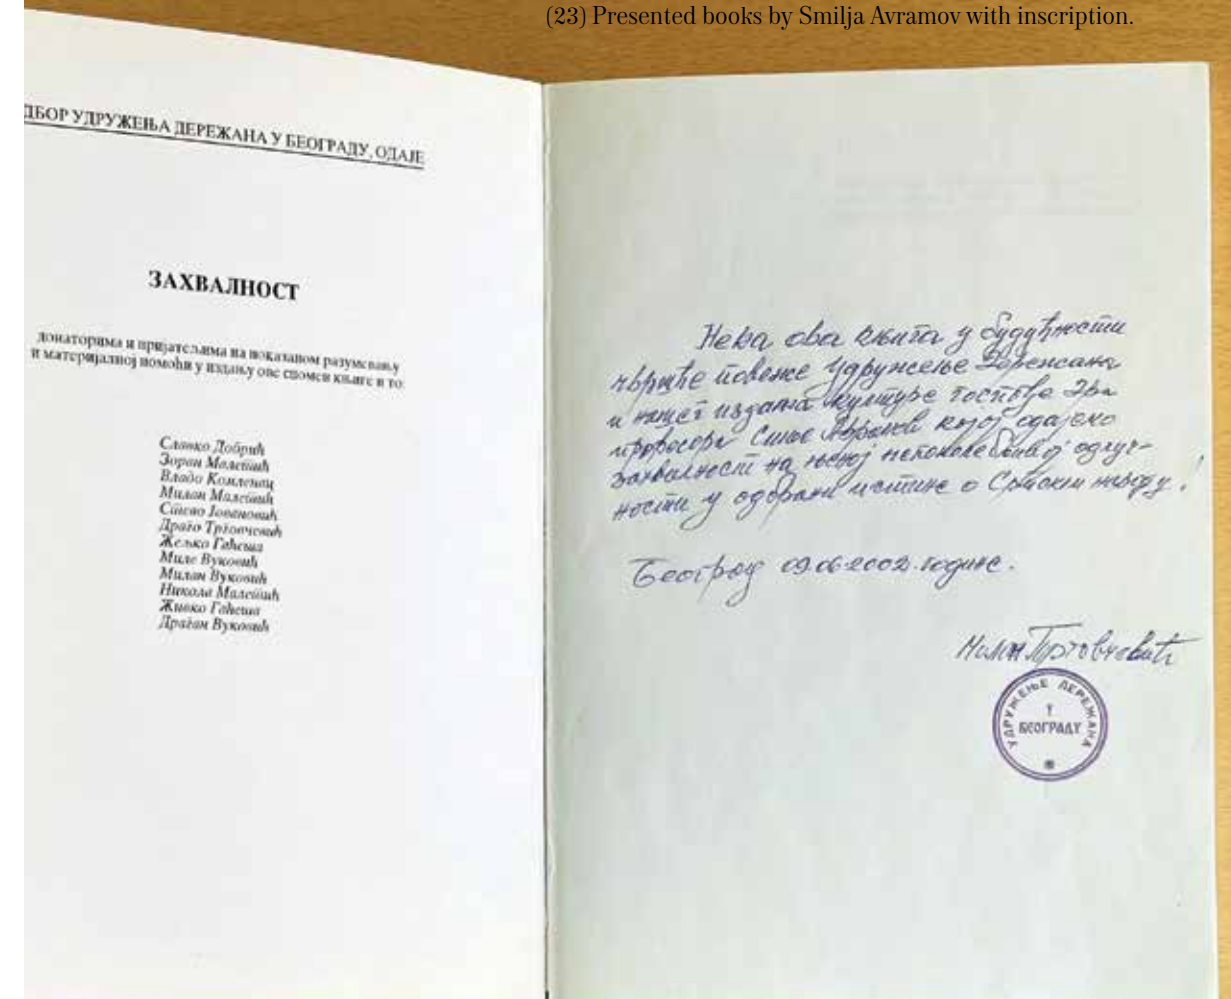 (23) Presented books by Smilja Avramov with inscription.
ДБОР УДРУЖЕЊА ДЕРЕЖАНА У БЕОГРАДУ, ОДАЈЕ
ЗАХВАЛНОСТ
донаторима и пријатељима на показаном разумевању
и материјалној помоћи у издању ове спомен књиге и то:
Славко Добрић
Зоран Малешић
Владо Комленац
Милан Малешић
Стево Јовановић
Драго Трговчевић
Жељко Гаћеша
Миле Вуковић
Милан Вуковић
Никола Малешић
Живко Гаћеша
Драган Вуковић
Нека ова књига у будућности
чвршће повеже Удружење Дережана
и нашег издања културе госпође Др
професора Аврамов којој одајемо
захвалност на њеној непоколебљивој одлуч-
ности у одбрани истине о Српском народу!
Београд 09.06.2002. године.
Трговчевић
УДРУЖЕЊЕ ДЕРЕЖАНА
У
БЕОГРАДУ